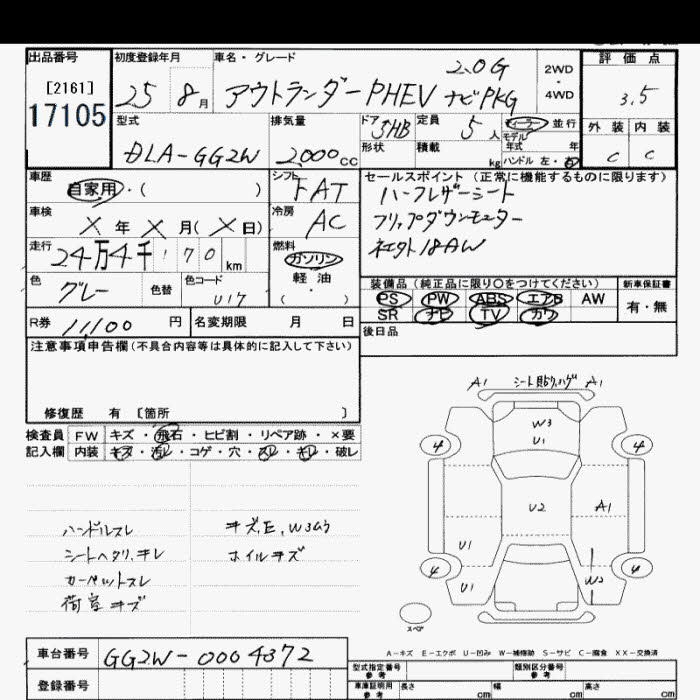 出品番号
[2161]
17105
初度登録年月
25 8月
車名・グレード
2.0G
アウトランダーPHEV ナビPKG
2WD
・
4WD
評価点
3.5
外装 内装
C C
型式
DLA-GG2W
排気量
2000cc
ドア 5HB
形状
定員 5人
積載 kg
ディーラー 並行
モデル
年式 年
ハンドル 左・右
車歴
自家用・( )
シフト
FAT
車検
X年X月(X日)
冷房
AC
走行
24万4千170km
燃料
ガソリン
軽油
( ・ )
色
グレー
色替
色コード
U17
R券 11,100円
名変期限 月 日
セールスポイント (正常に機能するものに限ります)
ハーフレザーシート
フリップダウンモニター
社外18AW
装備品 (純正品に限り○をつけてください)
PS PW ABS エアB AW
SR ナビ TV カワ
新車保証書
有・無
後日品
注意事項申告欄(不具合内容等は具体的に記入して下さい)
修復歴 有 [箇所 ]
検査員 FW キズ・飛石・ヒビ割・リペア跡・×要
記入欄 内装 キズ・汚レ・コゲ・穴・スレ・キレ・破レ
ハンドルスレ
シートヘタリ、キレ
カーペットスレ
荷室キズ
キズ、E、W3有り
ホイルキズ
A1 シート貼り、ハゲ A1
W3
U1
4 4
U2
A1
U1
4 4
U1 W2
スペア
A-キズ E-エクボ U-凹み W-補修跡 S-サビ C-腐食 XX-交換済
車台番号 GG2W-0004372
登録番号
型式指定番号
参考
類別区分番号
参考
車庫証明用
参考
長さ cm 幅 cm 高さ cm